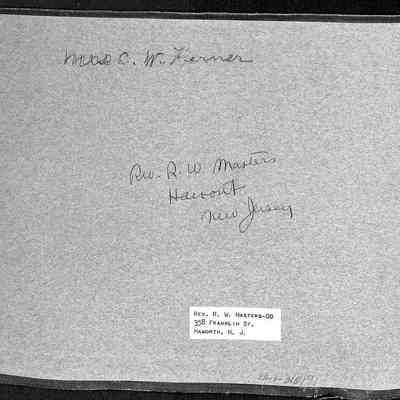 C. W. Kerner
Rev. R. W Masters
Haworth
New Jersey
REV. R. W. MASTERS-DD
358 FRANKLIN ST.
HAWORTH, N. J.